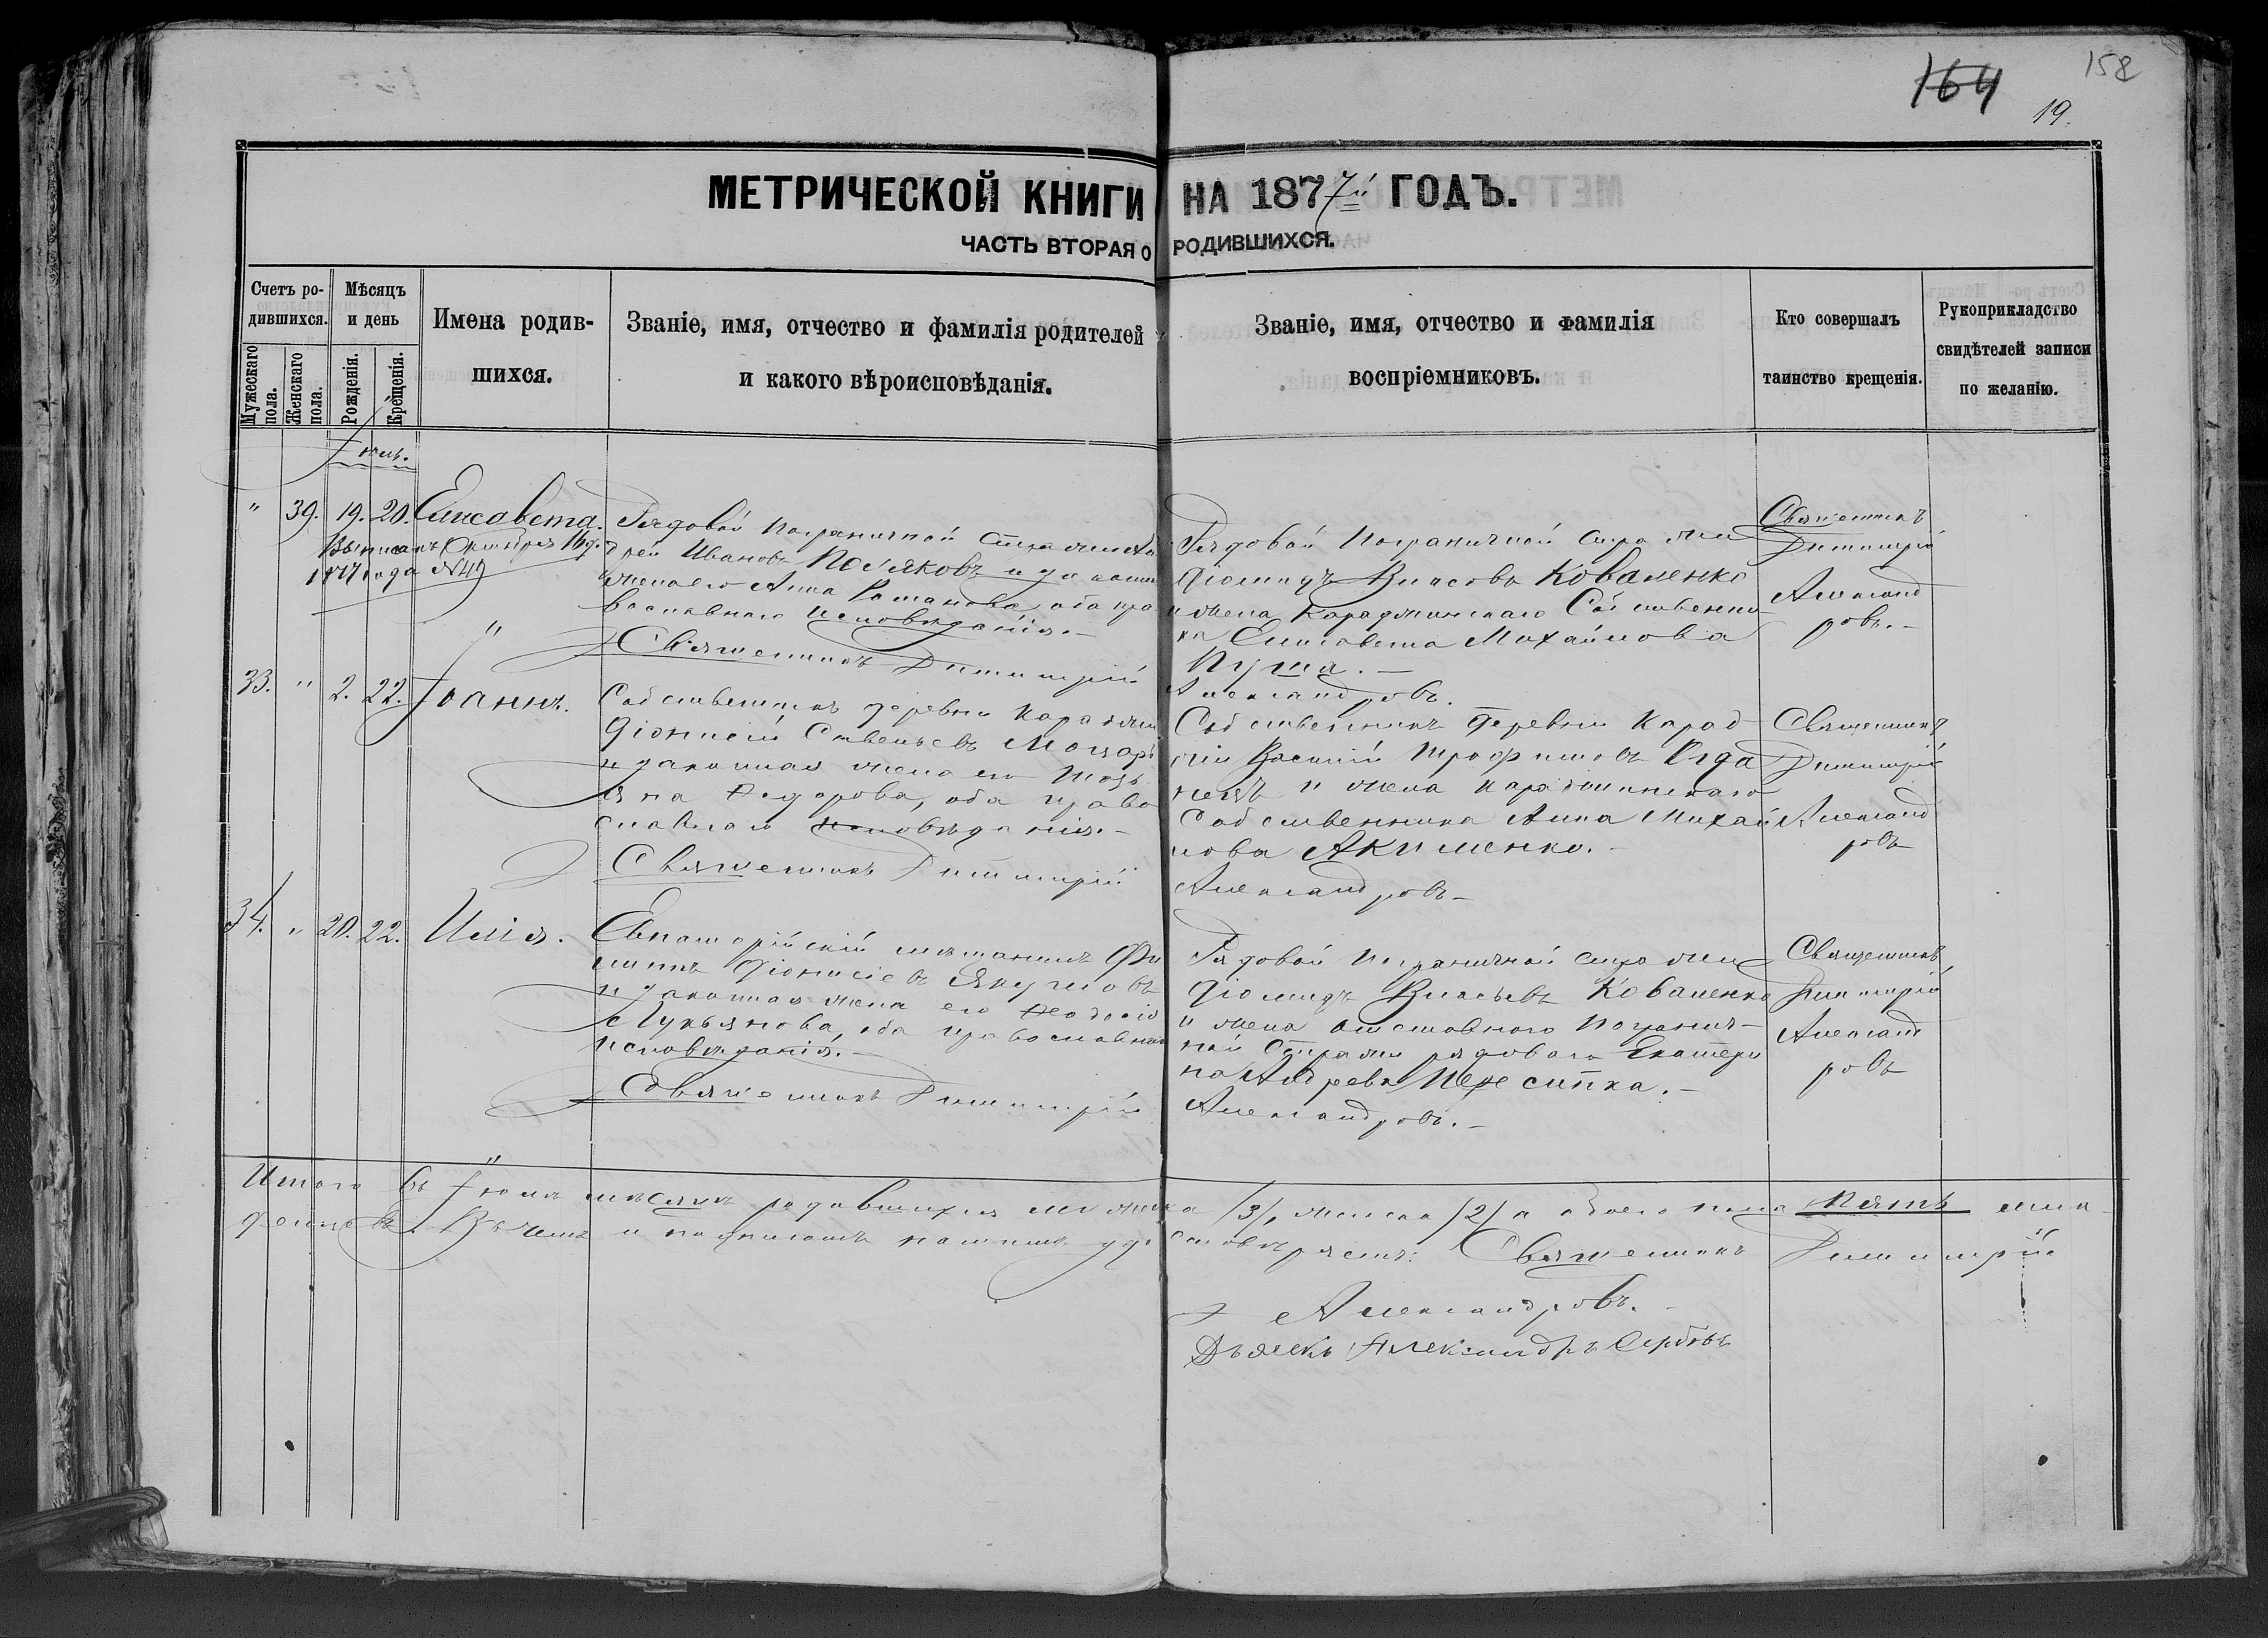 164
158
19.
МЕТРИЧЕСКОЙ КНИГИ НА 1877й ГОДЪ.
ЧАСТЬ ВТОРАЯ О РОДИВШИХСЯ.
Счетъ ро-
дившихся.
Мужескаго пола.
Женскаго пола.
Мѣсяцъ
и день
Рожденія.
Крещенія.
Имена родив-
шихся.
Званіе, имя, отчество и фамилія родителей
и какого вѣроисповѣданія.
Званіе, имя, отчество и фамилія
воспріемниковъ.
Кто совершалъ
таинство крещенія.
Рукоприкладство
свидѣтелей записи
по желанію.
" 39. 19. 20. Елисавета.
1877 года №49
Рядовой Пограничной Стражи
дрей Ивановъ Поляковъ и законн
жена его Анна Романова, оба пра
вославнаго исповѣданія.-
Священникъ Димитрій
Рядовой Пограничной стражи
Діомидъ Власовъ Коваленко
и жена Караджинскаго Собственни
ка Елисавета Михайлова
Александровъ.
Священникъ
Димитрій
Александ
ровъ.-
33. " 2. 22. Іоаннъ.
Собственникъ деревни Караджи
Діонисій
и законная жена его
яна Федорова, оба право
славнаго исповѣданія.-
Священникъ Димитрій
Собственникъ деревни Карад
жи Василій Трофимовъ
и жена Караджинскаго
Собственника Анна Михай
лова Акименко.-
Александровъ-
Священникъ
Димитрій
Александ
ровъ
34. " 20. 22. Илія.
Евпаторійскій мѣщанинъ Фи
липпъ Діонисіевъ
и законная жена его Феодосія
Лукьянова, оба православнаго
исповѣданія.-
Священникъ Димитрій
Рядовой Пограничной стражи
Діомидъ Власьевъ Коваленко
и жена отставного Погранич-
ной Стражи рядоваго Екатери
на Андреева Пересипка.-
Александровъ.-
Священникъ
Димитрій
Александ
ровъ
Итого въ Іюлѣ мѣсяцѣ родившихся мужеска /3/, женска /2/ а обоего пола пять мла-
денцевъ. Въ чемъ и подписомъ нашимъ удостовѣряемъ: Священникъ Димитрій
Александровъ.-
Дьячекъ Александръ